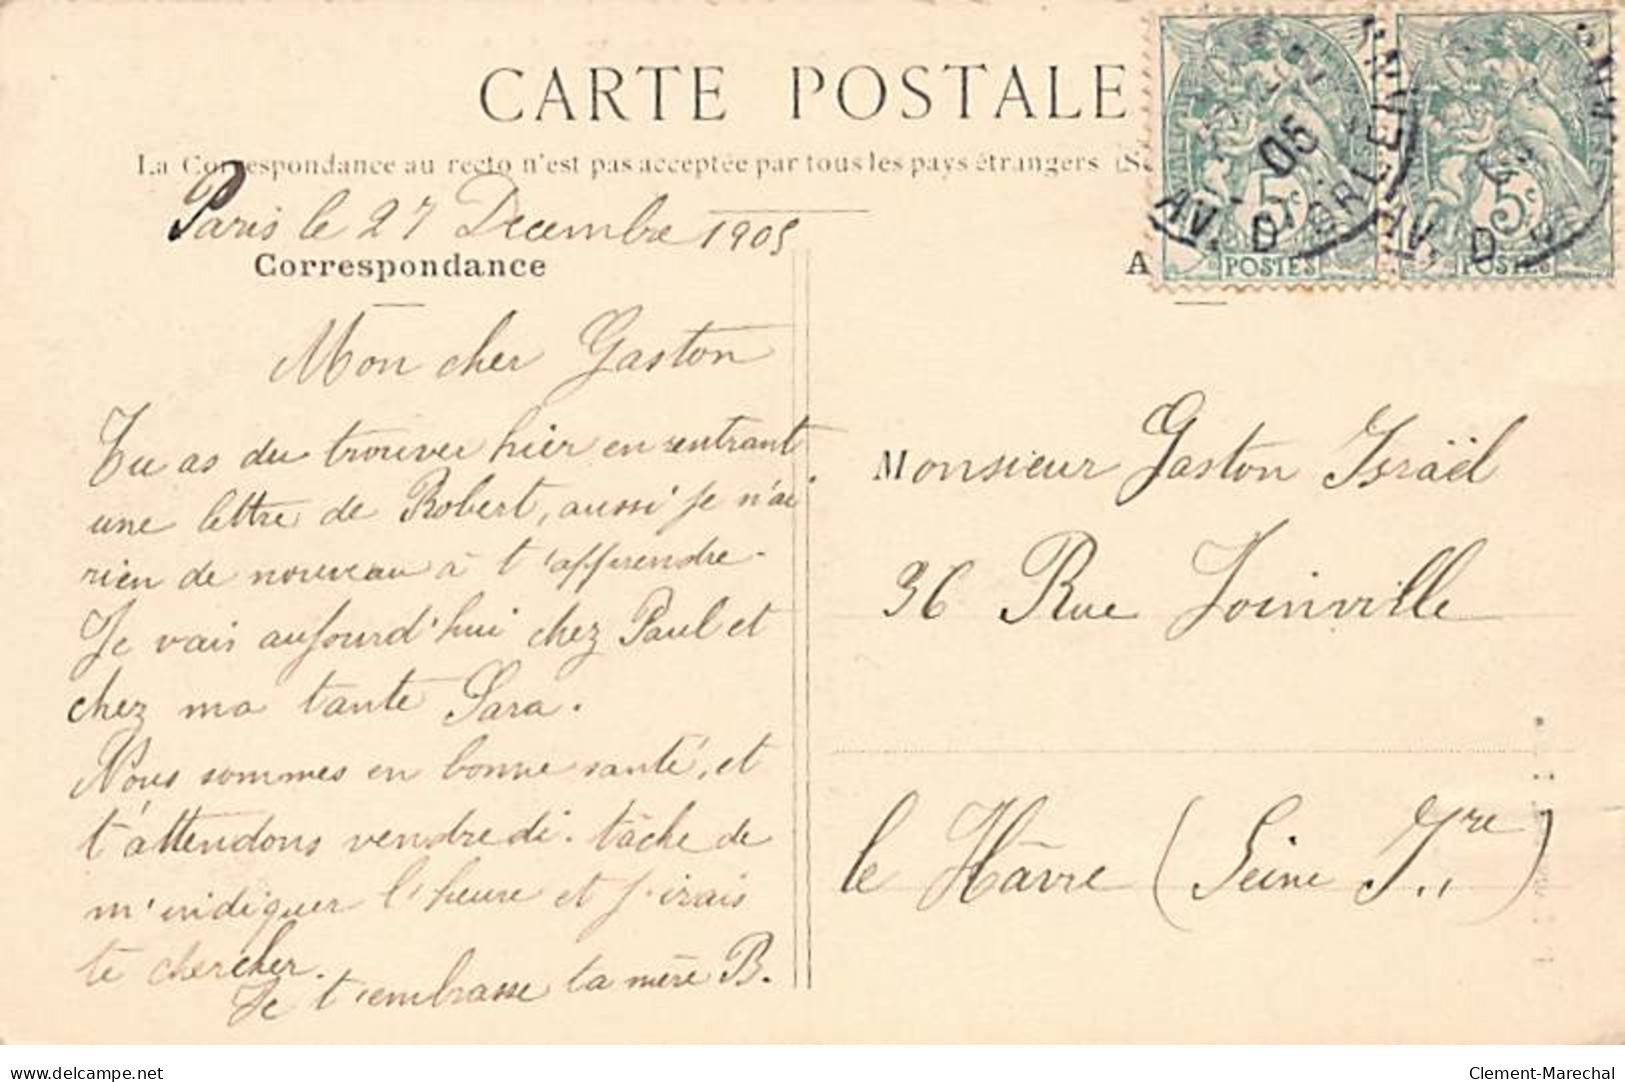 CARTE POSTALE
La Correspondance au recto n'est pas acceptée par tous les pays étrangers (Se
Paris le 27 Decembre 1905
Correspondance
Mon cher Gaston
Tu as du trouver hier en rentrant
une lettre de Robert, aussi je n'ai
rien de nouveau à t'apprendre.
Je vais aujourd'hui chez Paul et
chez ma tante Sara.
Nous sommes en bonne santé, et
t'attendons vendredi. tâche de
m'indiquer l'heure et j'irais
te chercher.
Je t'embrasse ta mère B.
A
Monsieur Gaston Israël
36 Rue Joinville
le Hâvre (Seine Ire)
05
AV. D'ORLEAN
5c
POSTES
AV. D
5c
POSTES
delcampe.net
Clement-Marechal